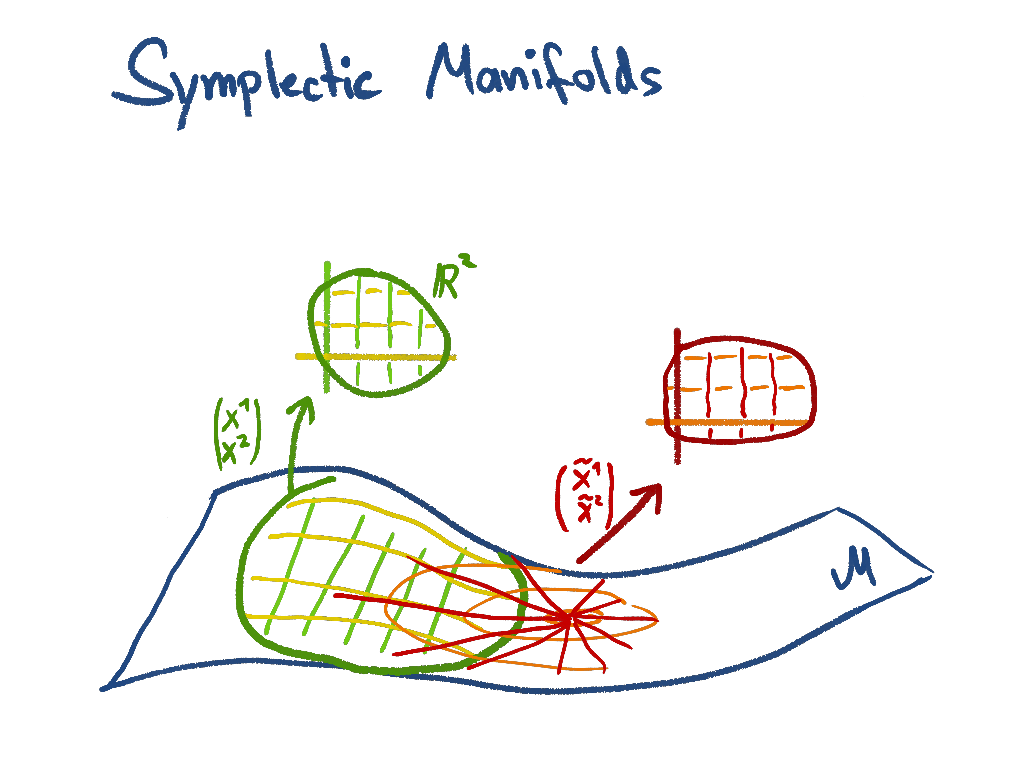 Symplectic Manifolds
ℝ²
(x¹
x²)
(x̃¹
x̃²)
M